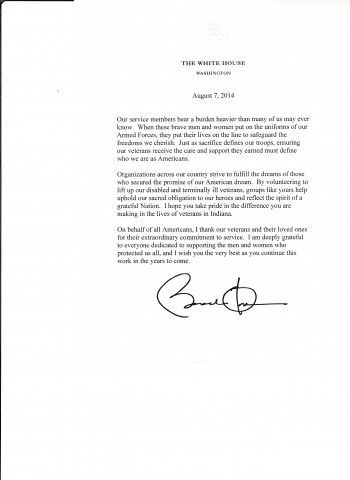 THE WHITE HOUSE
WASHINGTON
August 7, 2014
Our service members bear a burden heavier than many of us may ever
know. When these brave men and women put on the uniforms of our
Armed Forces, they put their lives on the line to safeguard the
freedoms we cherish. Just as sacrifice defines our troops, ensuring
our veterans receive the care and support they earned must define
who we are as Americans.
Organizations across our country strive to fulfill the dreams of those
who secured the promise of our American dream. By volunteering to
lift up our disabled and terminally ill veterans, groups like yours help
uphold our sacred obligation to our heroes and reflect the spirit of a
grateful Nation. I hope you take pride in the difference you are
making in the lives of veterans in Indiana.
On behalf of all Americans, I thank our veterans and their loved ones
for their extraordinary commitment to service. I am deeply grateful
to everyone dedicated to supporting the men and women who
protected us all, and I wish you the very best as you continue this
work in the years to come.